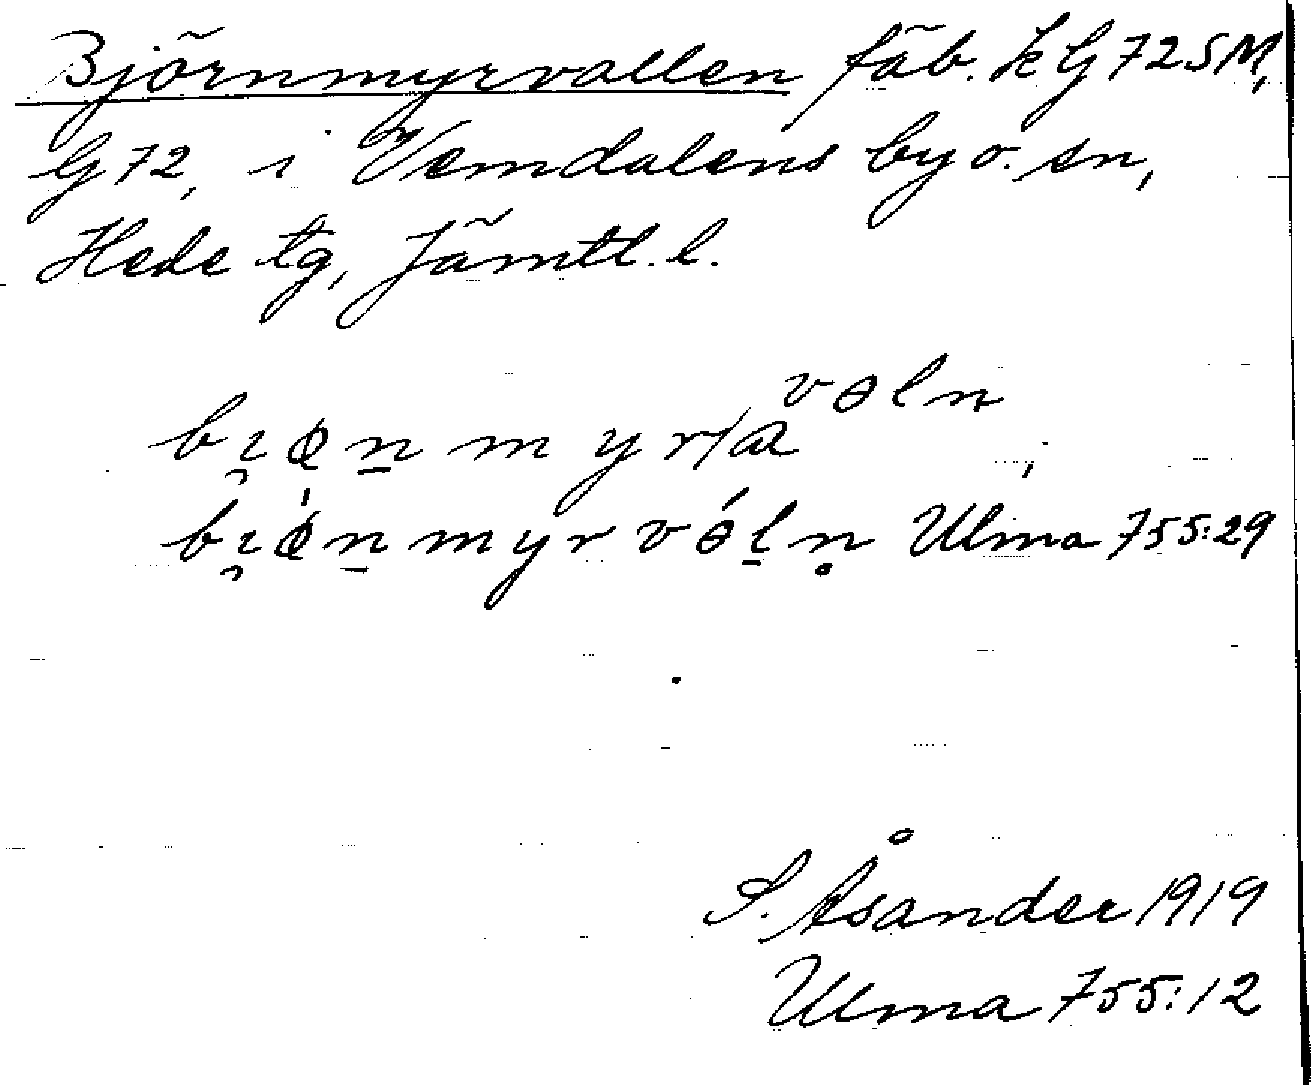 Björnmyrvallen fäb. k G 72 SM,
G 72, i Vemdalens by o. sn,
Hede tg, Jämtl. l.
bı̯øn̠myr/a vəln,
bı̯ǿn̠myrvə́l̠n̥ Ulma 755:29
S. Åsander 1919
Ulma 755:12